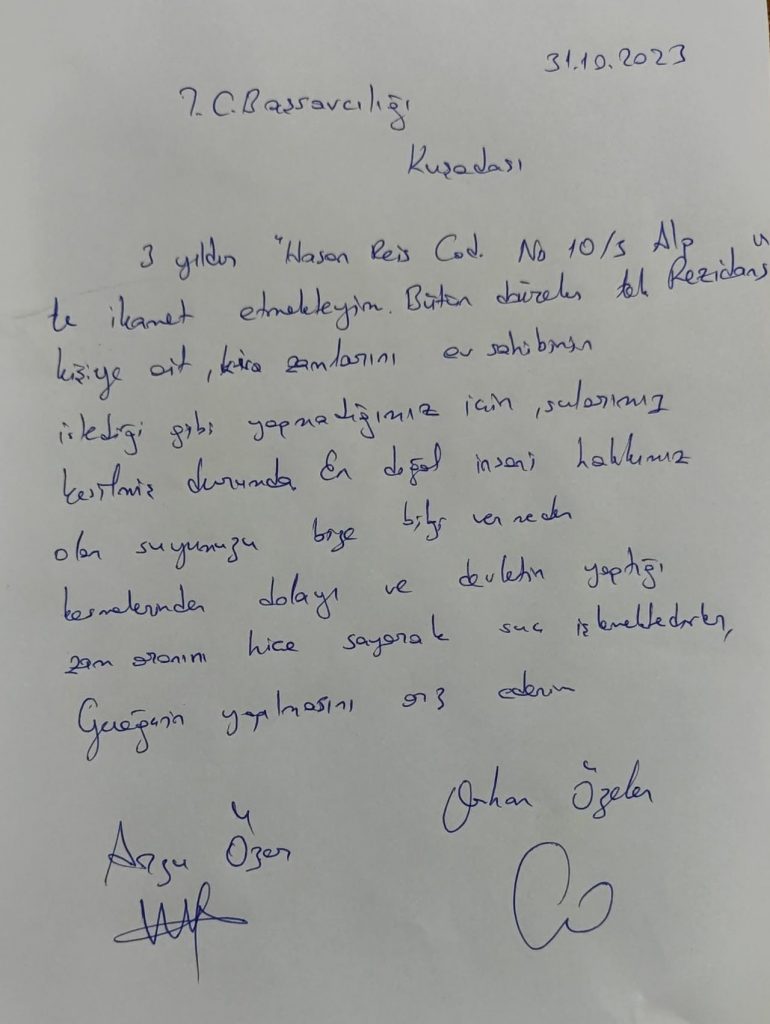 31.10.2023
T.C. Başsavcılığı
Kuşadası
3 yıldır "Hasan Reis Cad. No 10/3 Alp Rezidans"
te ikamet etmekteyim. Bütün daireler tek
kişiye ait, kira zamlarını ev sahibinin
istediği gibi yapmadığımız için, sularımız
kesilmiş durumda. En doğal insani hakkımız
olan suyumuzu bize bilgi vermeden
kesmelerinden dolayı ve devletin yaptığı
zam oranını hice sayarak suç işlemektedirler,
Gereğinin yapılmasını arz ederim
Orhan Özeler
Arzu Özer